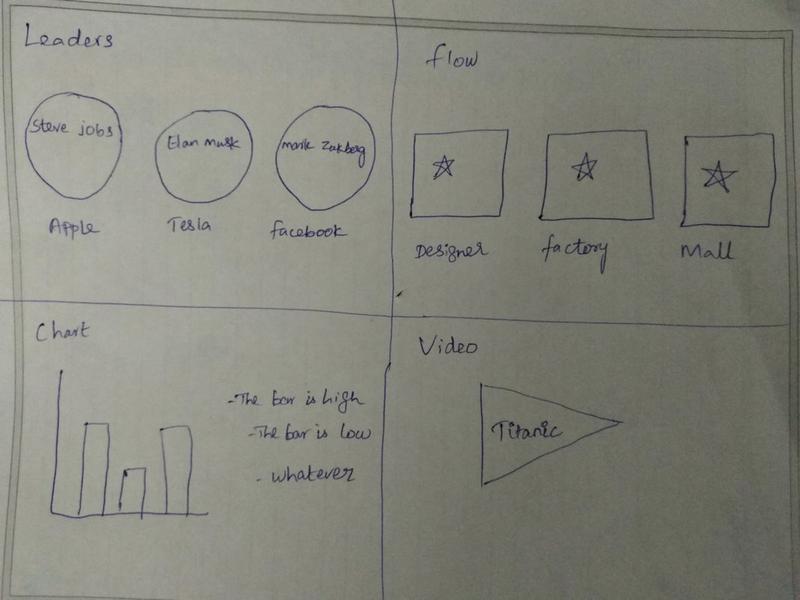 Leaders
Steve jobs
Elan musk
mark Zakberg
Apple
Tesla
facebook
flow
Designer
factory
Mall
Chart
-The bar is high
-The bar is low
- whatever
Video
Titanic